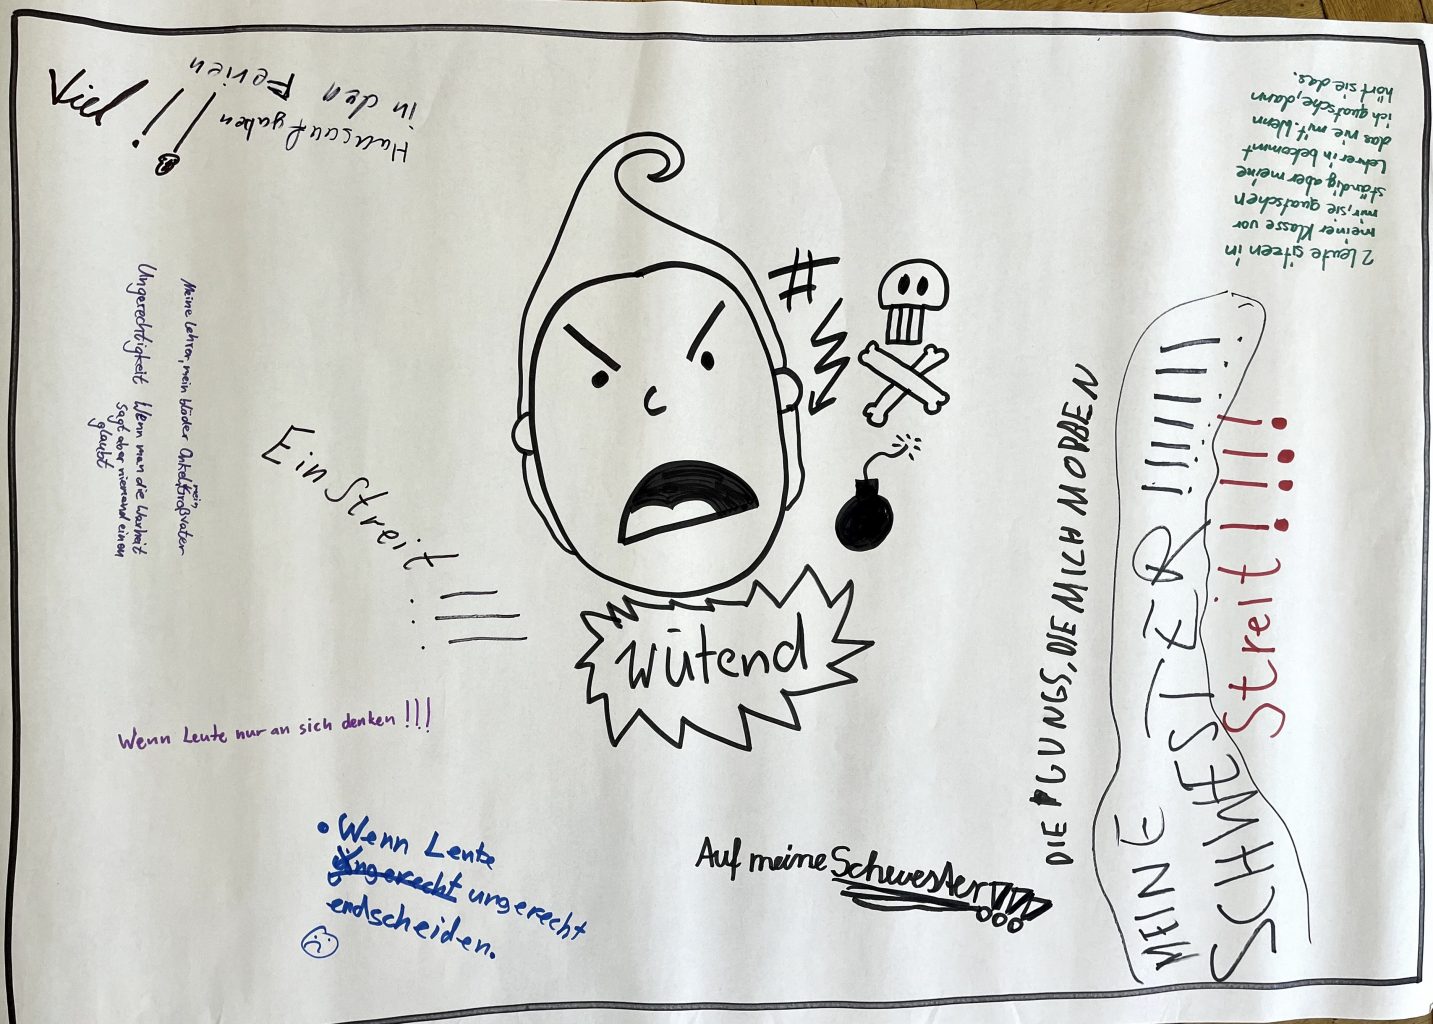 viel !!
Hausaufgaben
in den Ferien
2 Leute sitzen in
meiner Klasse vor
mir, sie quatschen
ständig aber meine
Lehrerin bekommt
das nie mit. Wenn
ich quatsche, dann
hört sie das.
Meine Lehrer, mein blöder Onkel, mein Großvater
Ungerechtigkeit Wenn man die Warheit
sagt aber niemand einen
glaubt
Ein Streit!!!
#
wütend
Wenn Leute nur an sich denken!!!
• Wenn Leute
ungerecht
endscheiden.
Auf meine Schwester!!!
DIE JUNGS, DIE MICH MOBBEN
MEINE
SCHWESTER!!!!!!!
Streit!!!!